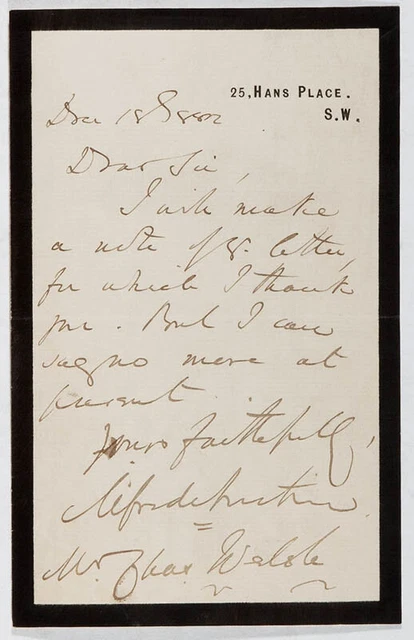 25, HANS PLACE.
S.W.
Dec 18 1882
Dear Sir,
I will make
a note of yr. letter,
for which I thank
you. But I can
say no more at
present.
Yours faithfully,
Mr Chas Welsh